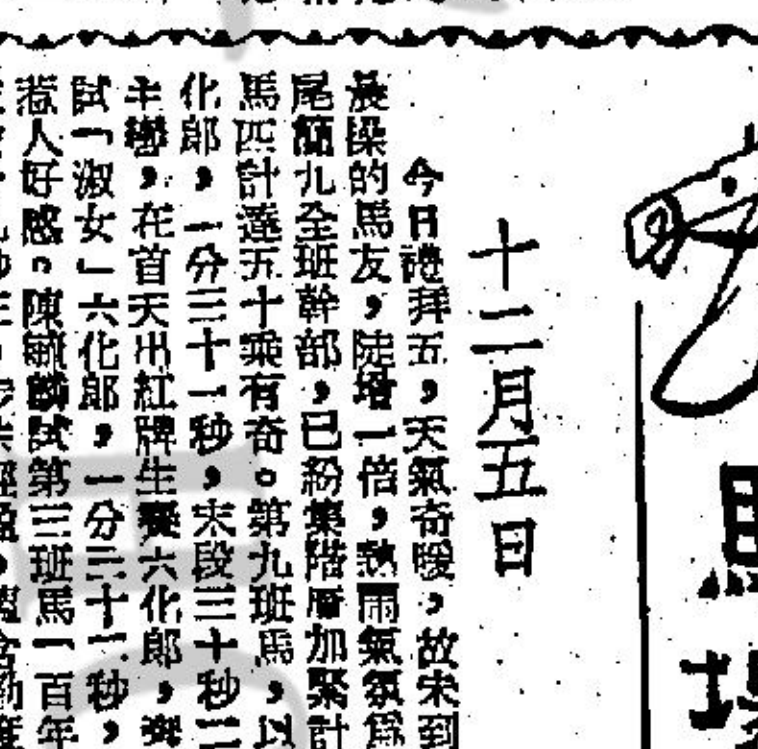 馬場
十二月五日
今日禮拜五，天氣奇暖，故未到
晨操的馬友，陡增一倍，熱雨氣氛爲
尾簡九全班幹部，已紛集階層加緊計
馬匹計達五十乘有奇。第九班馬，以
化郎，一分三十一秒，末段三十秒二
半轡，在首天出紅牌生賽六化郎，
試「淑女」六化郎，一分三十一秒，
惹人好感。陳毓麟試第三班馬一百年